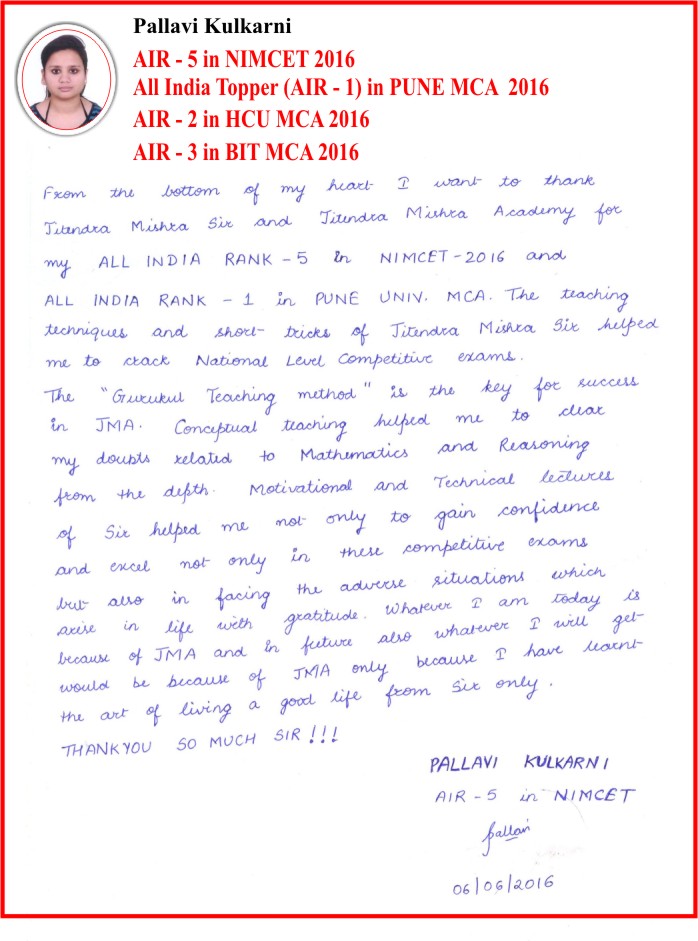 Pallavi Kulkarni
AIR - 5 in NIMCET 2016
All India Topper (AIR - 1) in PUNE MCA 2016
AIR - 2 in HCU MCA 2016
AIR - 3 in BIT MCA 2016
From the bottom of my heart I want to thank
Jitendra Mishra Sir and Jitendra Mishra Academy for
my ALL INDIA RANK - 5 in NIMCET - 2016 and
ALL INDIA RANK - 1 in PUNE UNIV. MCA. The teaching
techniques and short tricks of Jitendra Mishra Sir helped
me to crack National Level Competitive exams.
The "Gurukul Teaching method" is the key for success
in JMA. Conceptual teaching helped me to clear
my doubts related to Mathematics and Reasoning
from the depth. Motivational and Technical lectures
of Sir helped me not only to gain confidence
and excel not only in these competitive exams
but also in facing the adverse situations which
arise in life with gratitude. Whatever I am today is
because of JMA and in future also whatever I will get
would be because of JMA only because I have learnt
the art of living a good life from Sir only.
THANKYOU SO MUCH SIR !!!
PALLAVI KULKARNI
AIR - 5 in NIMCET
Pallavi
06/06/2016